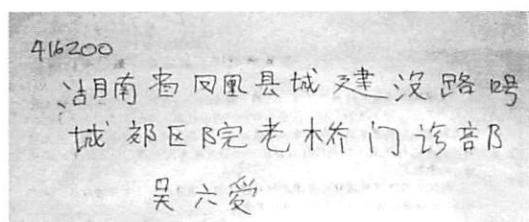 416200
湖南省凤凰县城建设路号
城郊区院老桥门诊部
吴六爱